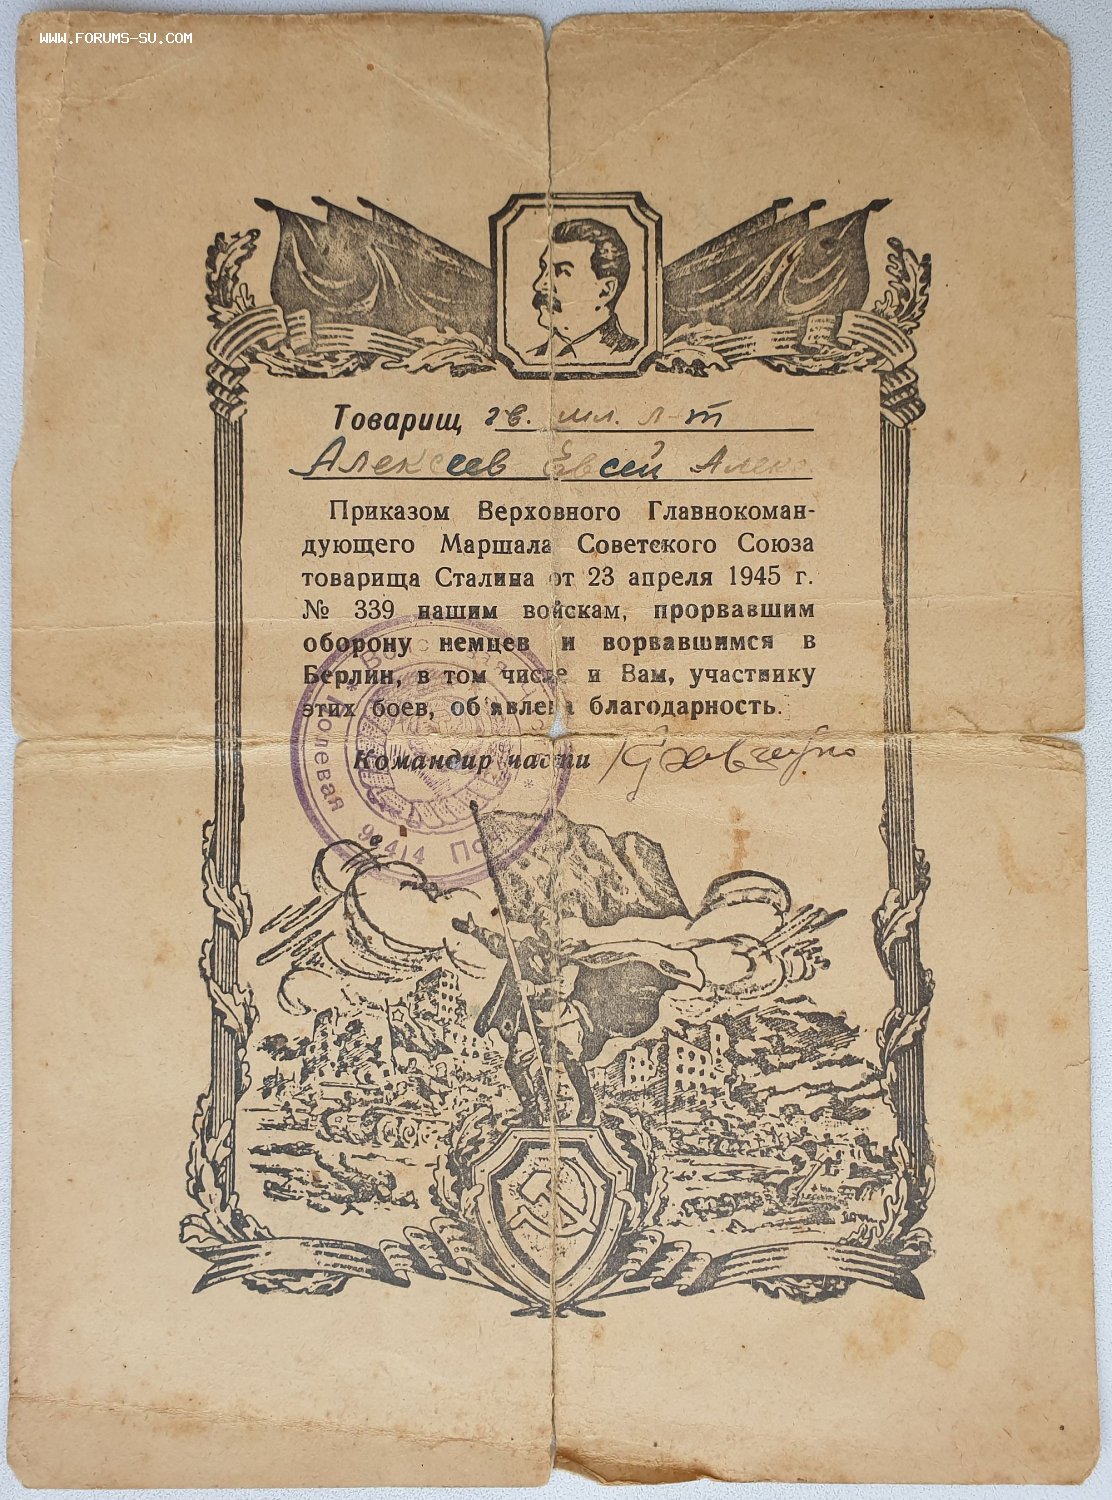 WWW.FORUMS-SU.COM
Товарищ гв. мл. л-т
Алексеев Евсей Алекс
Приказом Верховного Главнокоман-
дующего Маршала Советского Союза
товарища Сталина от 23 апреля 1945 г.
№ 339 нашим войскам, прорвавшим
оборону немцев и ворвавшимся в
Берлин, в том числе и Вам, участнику
этих боев, об'явлена благодарность.
Командир части
Полевая
Поч